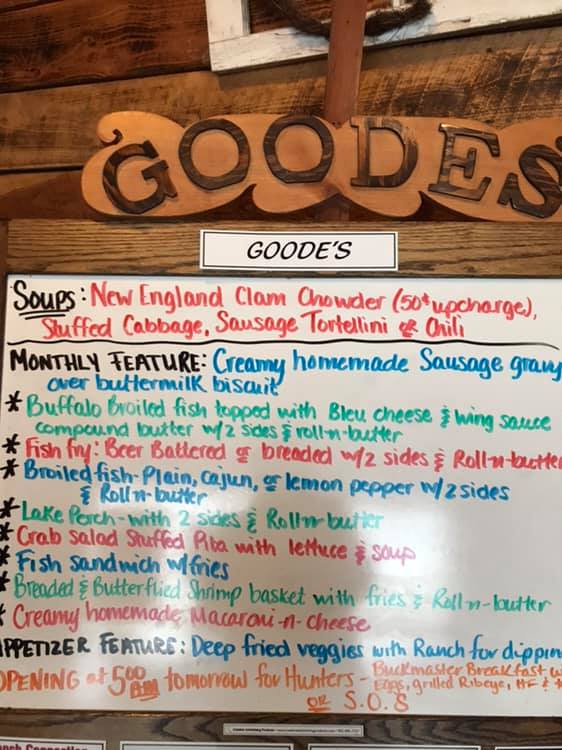 GOODES
GOODE'S
Soups: New England Clam Chowder (50¢ upcharge),
Stuffed Cabbage, Sausage Tortellini or Chili
Monthly Feature: Creamy homemade Sausage gravy
over buttermilk biscuit
* Buffalo Broiled fish topped with Bleu cheese & wing sauce
compound butter w/2 sides & roll-n-butter
* Fish fry: Beer Battered or breaded w/2 sides & Roll-n-butter
* Broiled fish-Plain, Cajun, or lemon pepper w/2 sides
& Roll-n-butter
* Lake Perch-with 2 sides & Roll n butter
* Crab salad Stuffed Pita with lettuce & soup
* Fish sandwich w/fries
* Breaded & Butterflied Shrimp basket with fries & Roll-n-butter
* Creamy homemade Macaroni-n-cheese
PPETIZER FEATURE: Deep fried veggies with Ranch for dippin
OPENING at 5:00 am tomorrow for Hunters - Buckmaster Breakfast w
Eggs, grilled Ribeye, HF &
or S.O.S